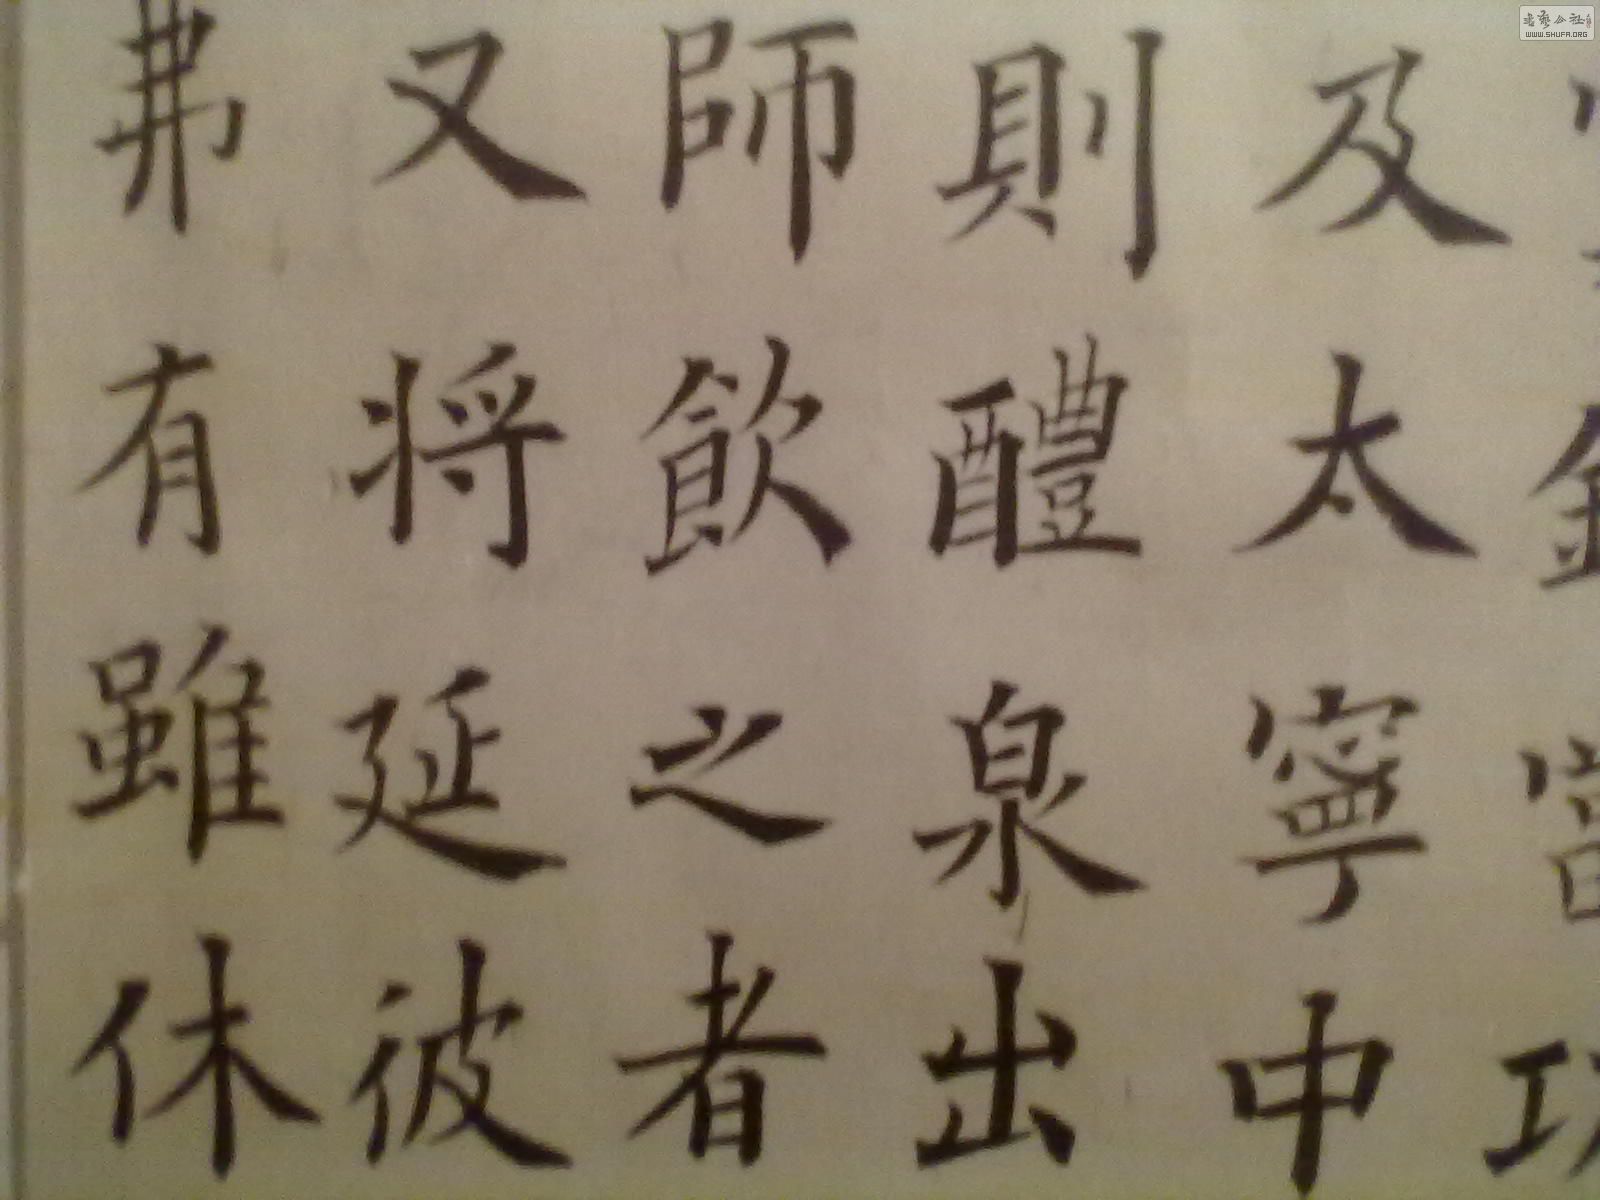 及太寧中
則醴泉出
師飲之者
又将延彼
弗有雖休
WWW.SHUFA.ORG